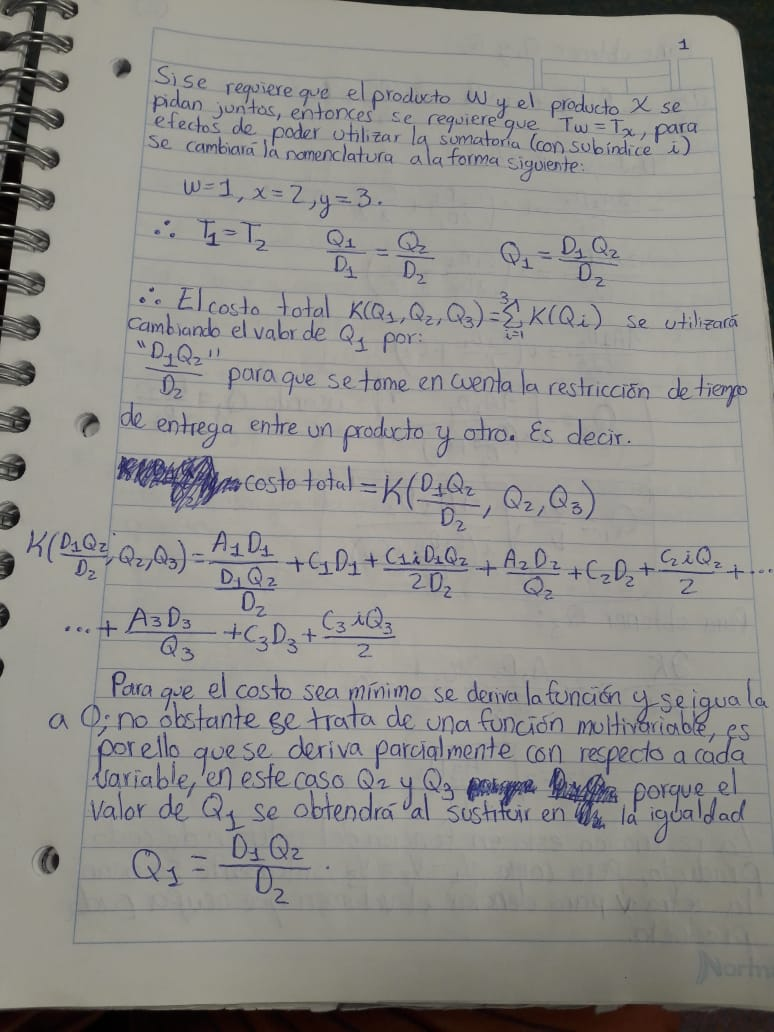 1
Si se requiere que el producto W y el producto X se
pidan juntos, entonces se requiere que Tw = Tx, para
efectos de poder utilizar la sumatoria (con subíndice i)
se cambiará la nomenclatura a la forma siguiente:
w=1, x=2, y=3.
∴ T1=T2 Q1/D1 = Q2/D2 Q1 = D1 Q2/D2
∴ El costo total K(Q1, Q2, Q3) = 3Σi=1 K(Qi) se utilizará
cambiando el valor de Q1 por:
"D1Q2"/D2 para que se tome en cuenta la restricción de tiempo
de entrega entre un producto y otro. Es decir.
costo total = K(D1Q2/D2, Q2, Q3)
K(D1Q2/D2, Q2, Q3) = A1D1/(D1Q2/D2) + C1D1 + C1iD1Q2/2D2 + A2D2/Q2 + C2D2 + C2iQ2/2 + ...
... + A3D3/Q3 + C3D3 + C3iQ3/2
Para que el costo sea mínimo se deriva la función y se iguala
a 0; no obstante se trata de una función multivariable, es
por ello que se deriva parcialmente con respecto a cada
variable, en este caso Q2 y Q3 porque el
valor de Q1 se obtendrá al sustituir en la igualdad
Q1 = D1 Q2/D2 .
Norma